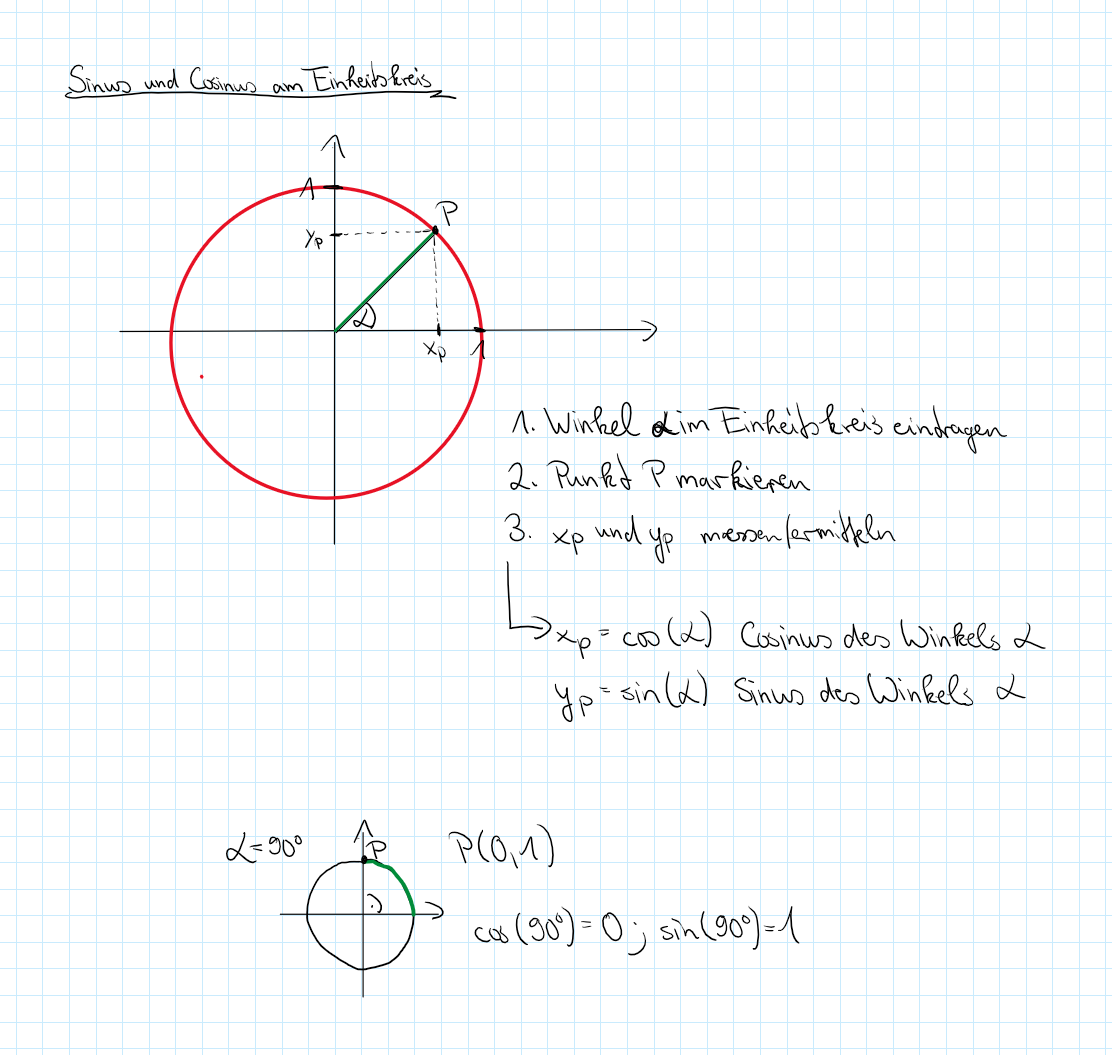 Sinus und Cosinus am Einheitskreis
1
P
yp
α
xp
1
1. Winkel α im Einheitskreis eintragen
2. Punkt P markieren
3. xp und yp messen/ermitteln
xp = cos(α) Cosinus des Winkels α
yp = sin(α) Sinus des Winkels α
α = 90°
P
P(0,1)
cos(90°) = 0 ; sin(90°) = 1